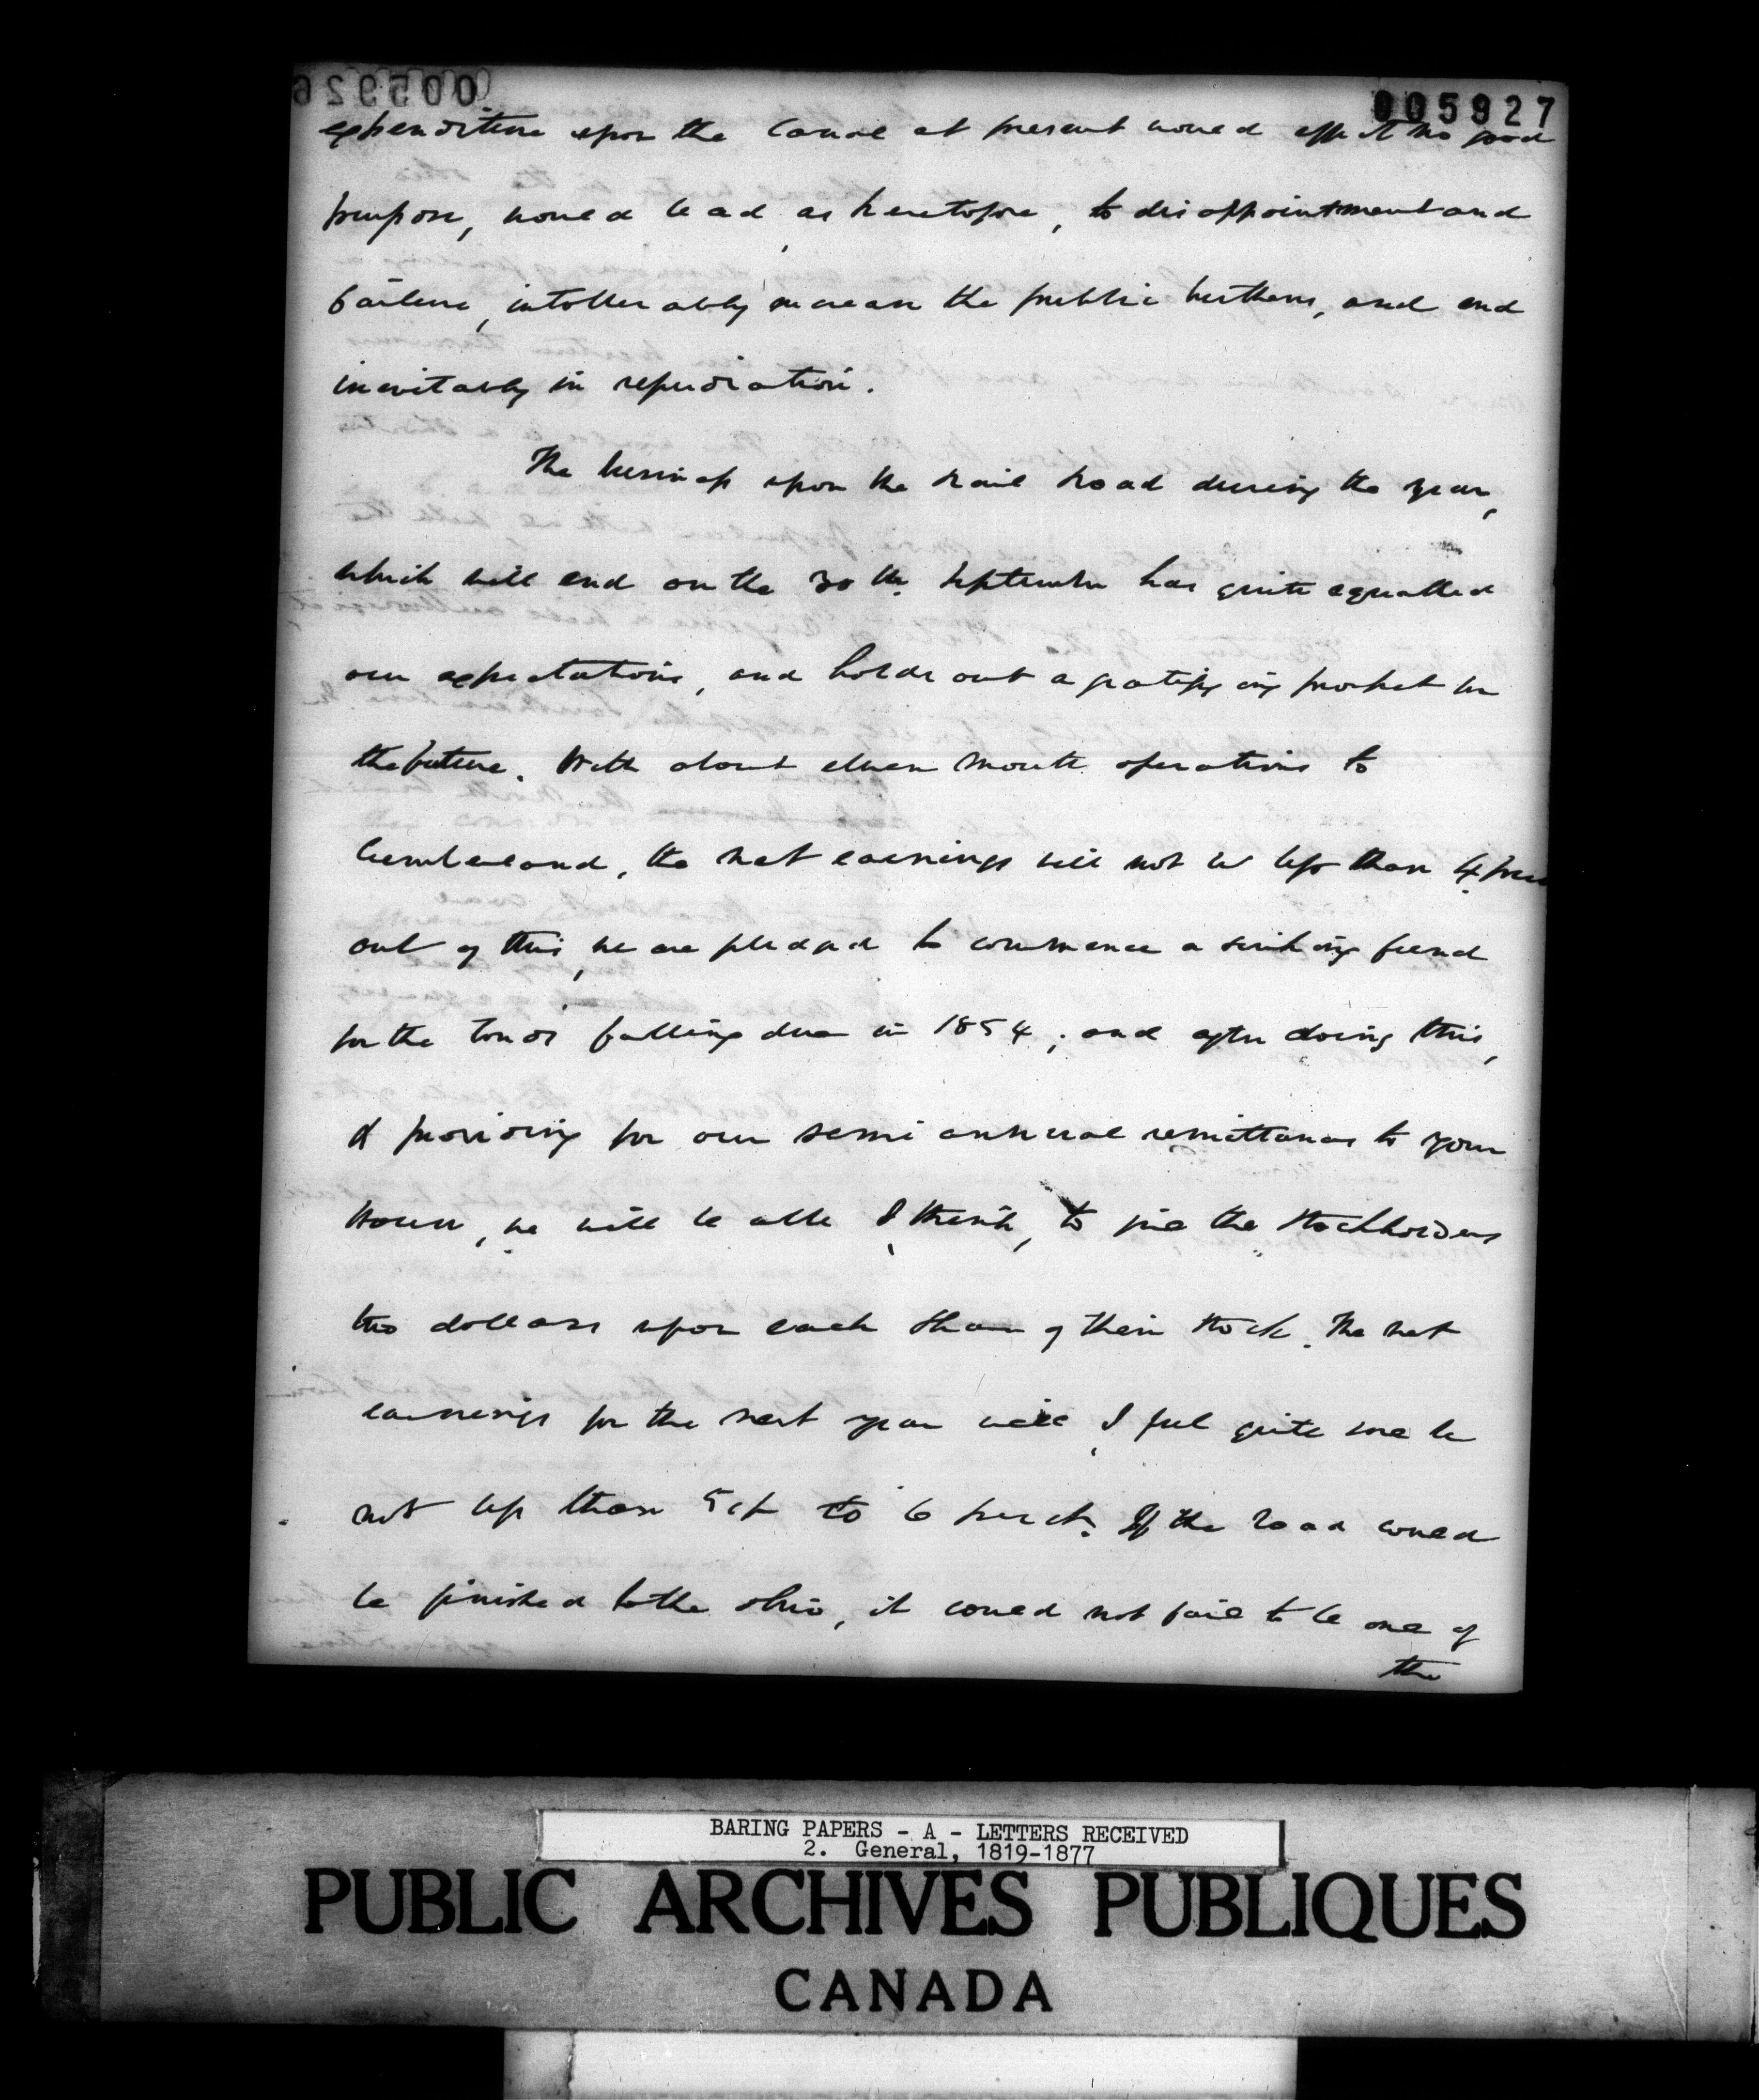 005926
005927
expenditure upon the Canal at present would effect no good
purpose, would lead, as heretofore, to disappointment and
failure, intollerably increase the public burthens, and end
inevitably in repudiation.
The business upon the Rail Road during the year,
which will end on the 30th. September has quite equalled
our expectations, and holds out a gratifying prospect for
the future. With about eleven months operations to
Cumberland, the net earnings will not be less than 4 per
out of this, we are pledged to commence a sinking fund
for the bonds falling due in 1854; and after doing this,
& providing for our semi annual remittances to your
House, we will be able, I think, to give the Stockholders
two dollars upon each share of their stock. The net
earnings for the next year will, I feel quite sure be
not less than 5 to 6 per ct. If the Road could
be finished to the Ohio, it could not fail to be one of
the
BARING PAPERS - A - LETTERS RECEIVED
2. General, 1819-1877
PUBLIC ARCHIVES PUBLIQUES
CANADA